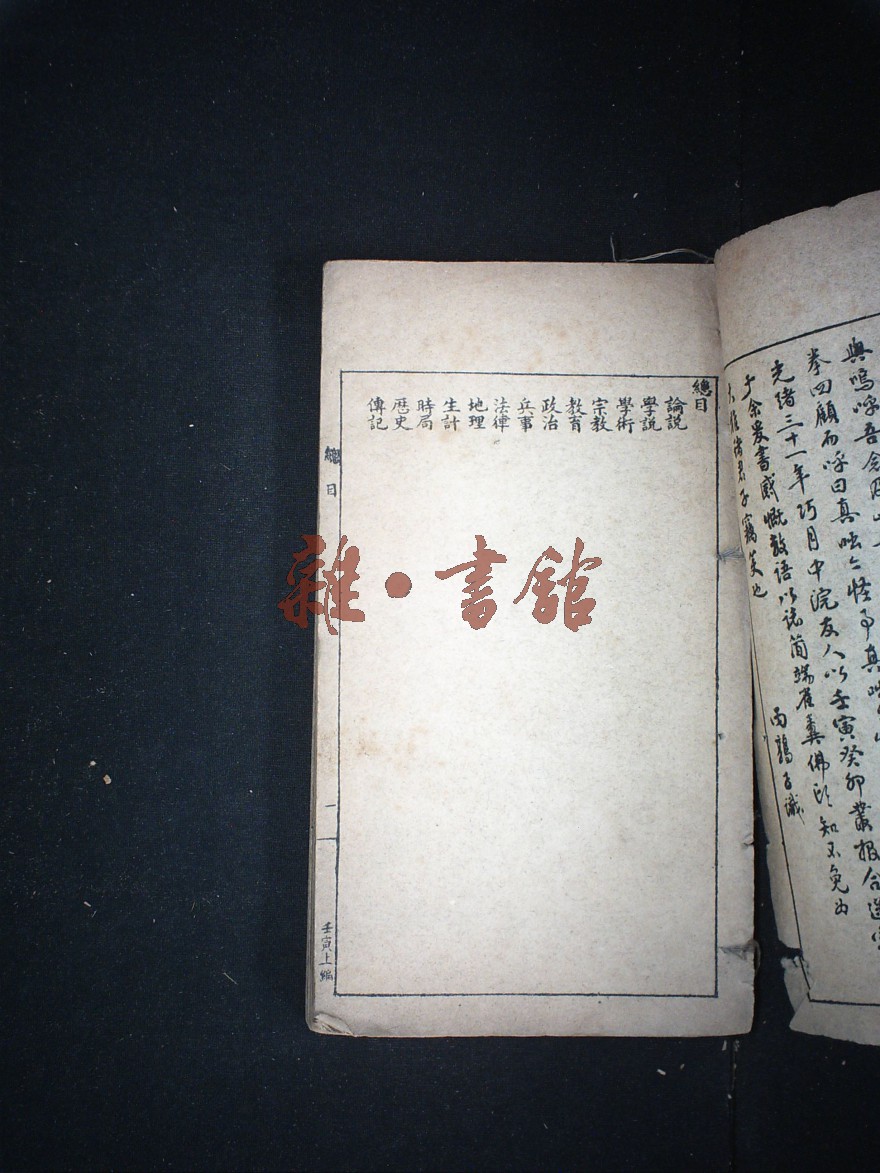 與嗚呼吾念
拳四顧而呼曰真咄咄怪事真咄
光緒三十一年 月中浣友人以壬寅癸卯叢報合選
于余爰書感慨數語以誌簡端雀糞佛頂知不免為
君子竊笑也
識
總目
論説
學説
學術
宗教
教育
政治
兵事
法律
地理
生計
時局
歷史
傳記
總目
一
壬寅上編
雜·書館